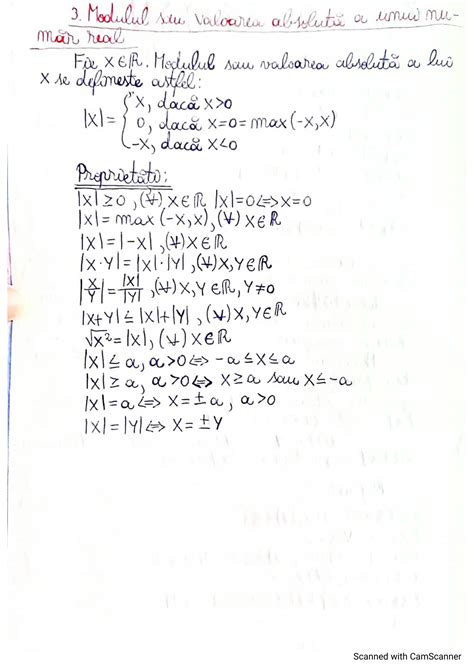 3. Modulul sau valoarea absolută a unui nu-
măr real
Fie x∈ℝ. Modulul sau valoarea absolută a lui
x se definește astfel:
x, dacă x>0
|x|= { 0, dacă x=0 = max(-x,x)
-x, dacă x<0
Proprietăți:
|x|≥0, (∀) x∈ℝ |x|=0⇔x=0
|x|= max(-x,x), (∀) x∈ℝ
|x|=|-x|, (∀) x∈ℝ
|x·y|=|x|·|y|, (∀) x,y∈ℝ
|x/y|=|x|/|y|, (∀) x,y∈ℝ, y≠0
|x+y|≤|x|+|y|, (∀) x,y∈ℝ
√x²=|x|, (∀) x∈ℝ
|x|≤a, a>0⇔ -a≤x≤a
|x|≥a, a>0⇔ x≥a sau x≤-a
|x|=a⇔ x=±a, a>0
|x|=|y|⇔ x=±y
Scanned with CamScanner